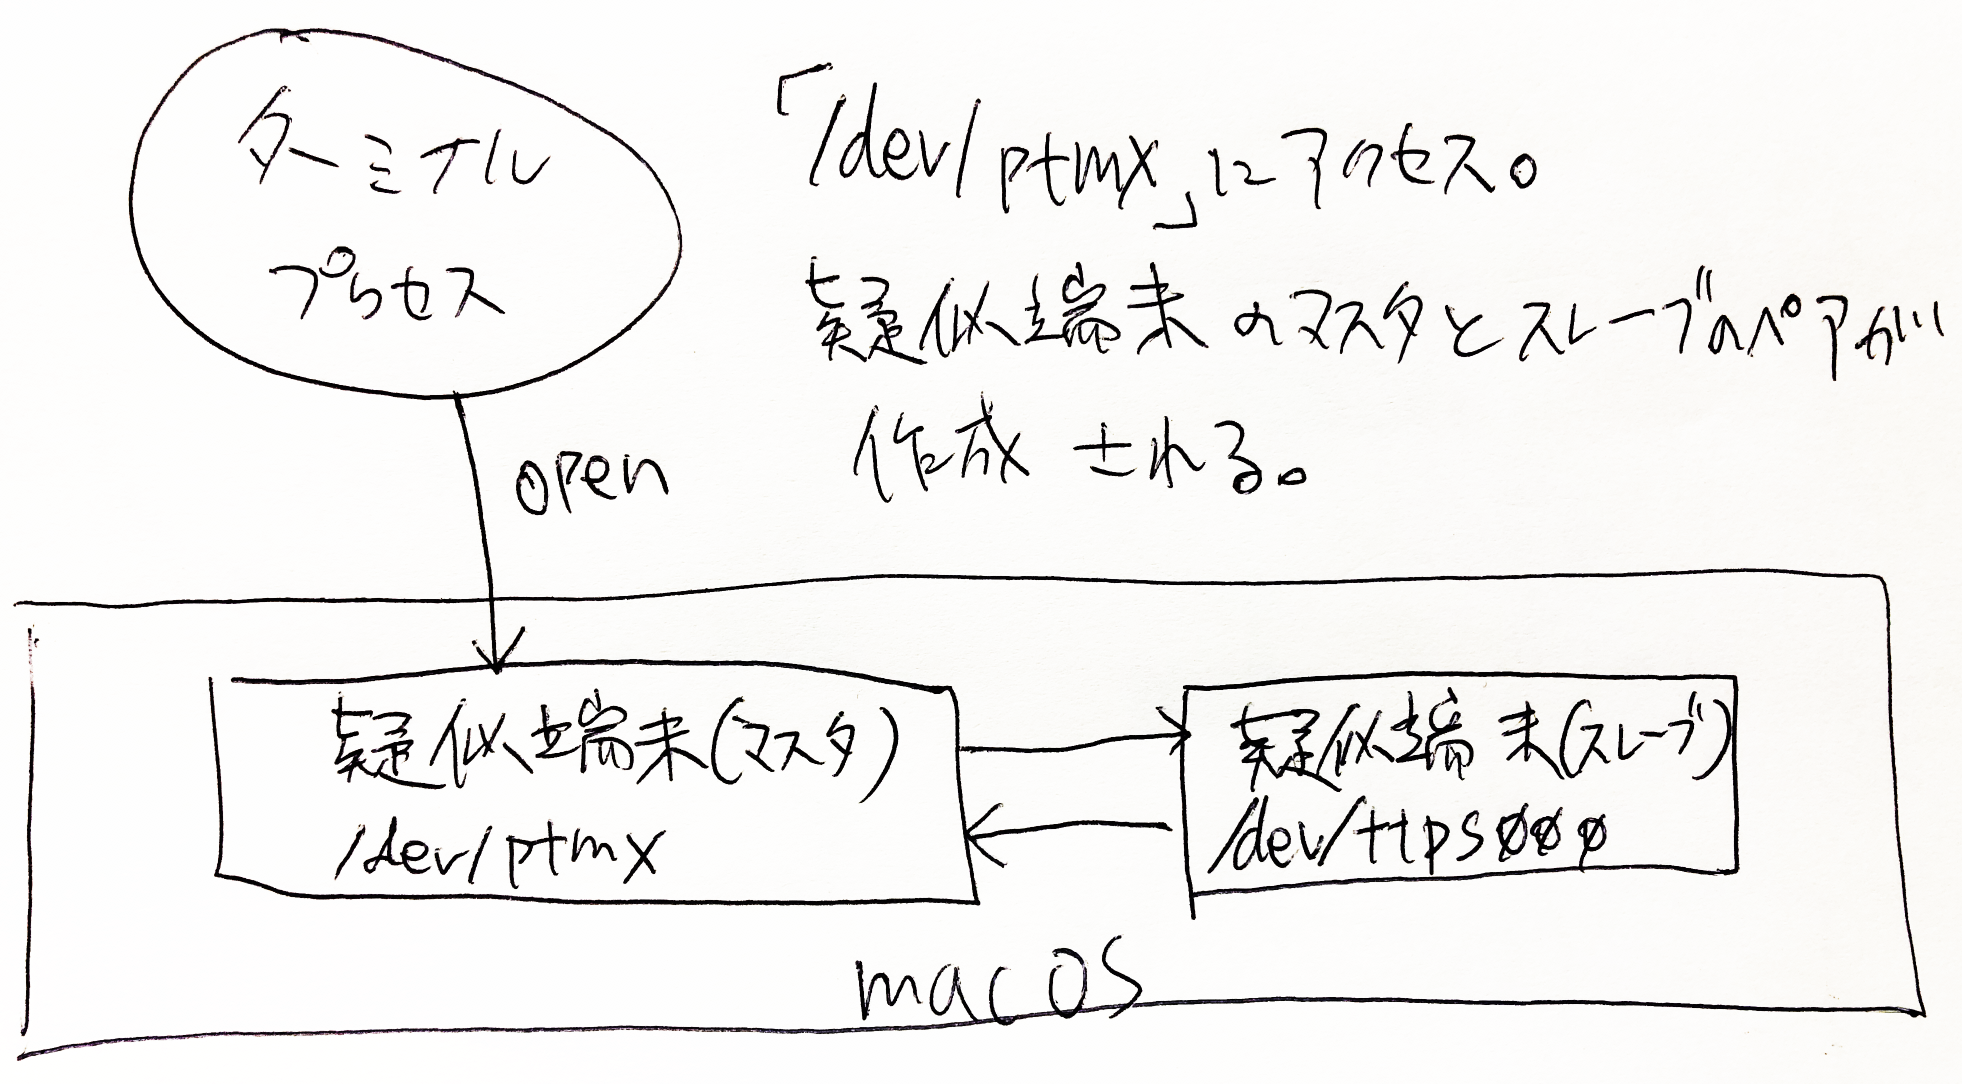 ターミナル
プロセス
「/dev/ptmx」にアクセス。
疑似端末のマスタとスレーブのペアが
作成される。
open
疑似端末(マスタ)
/dev/ptmx
疑似端末(スレーブ)
/dev/ttps000
macOS